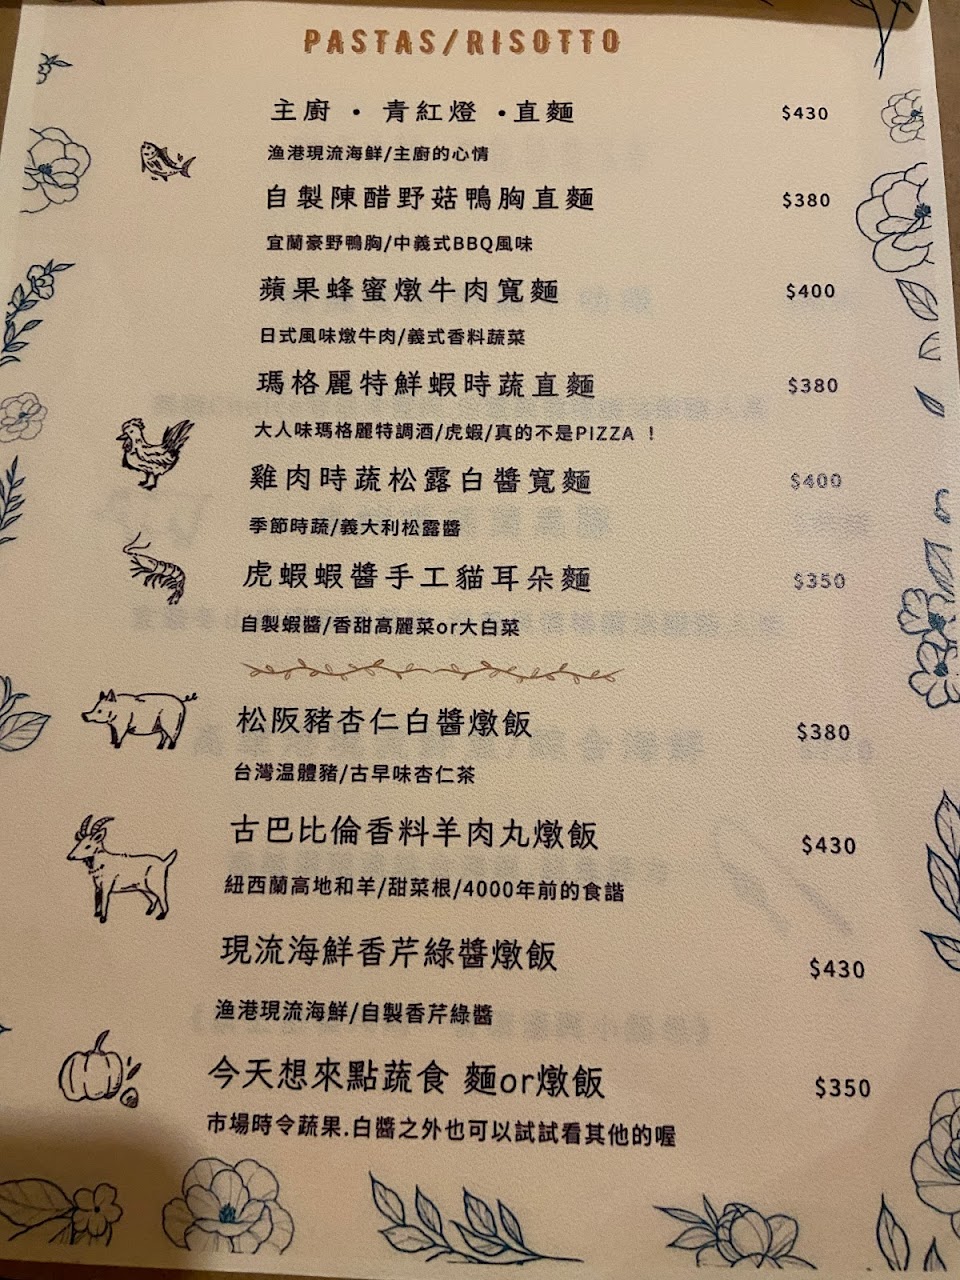 PASTAS/RISOTTO
主廚・青紅燈・直麵 $430
漁港現流海鮮/主廚的心情
自製陳醋野菇鴨胸直麵 $380
宜蘭豪野鴨胸/中義式BBQ風味
蘋果蜂蜜燉牛肉寬麵 $400
日式風味燉牛肉/義式香料蔬菜
瑪格麗特鮮蝦時蔬直麵 $380
大人味瑪格麗特調酒/虎蝦/真的不是PIZZA !
雞肉時蔬松露白醬寬麵 $400
季節時蔬/義大利松露醬
虎蝦蝦醬手工貓耳朵麵 $350
自製蝦醬/香甜高麗菜or大白菜
松阪豬杏仁白醬燉飯 $380
台灣溫體豬/古早味杏仁茶
古巴比倫香料羊肉丸燉飯 $430
紐西蘭高地和羊/甜菜根/4000年前的食譜
現流海鮮香芹綠醬燉飯 $430
漁港現流海鮮/自製香芹綠醬
今天想來點蔬食 麵or燉飯 $350
市場時令蔬果.白醬之外也可以試試看其他的喔